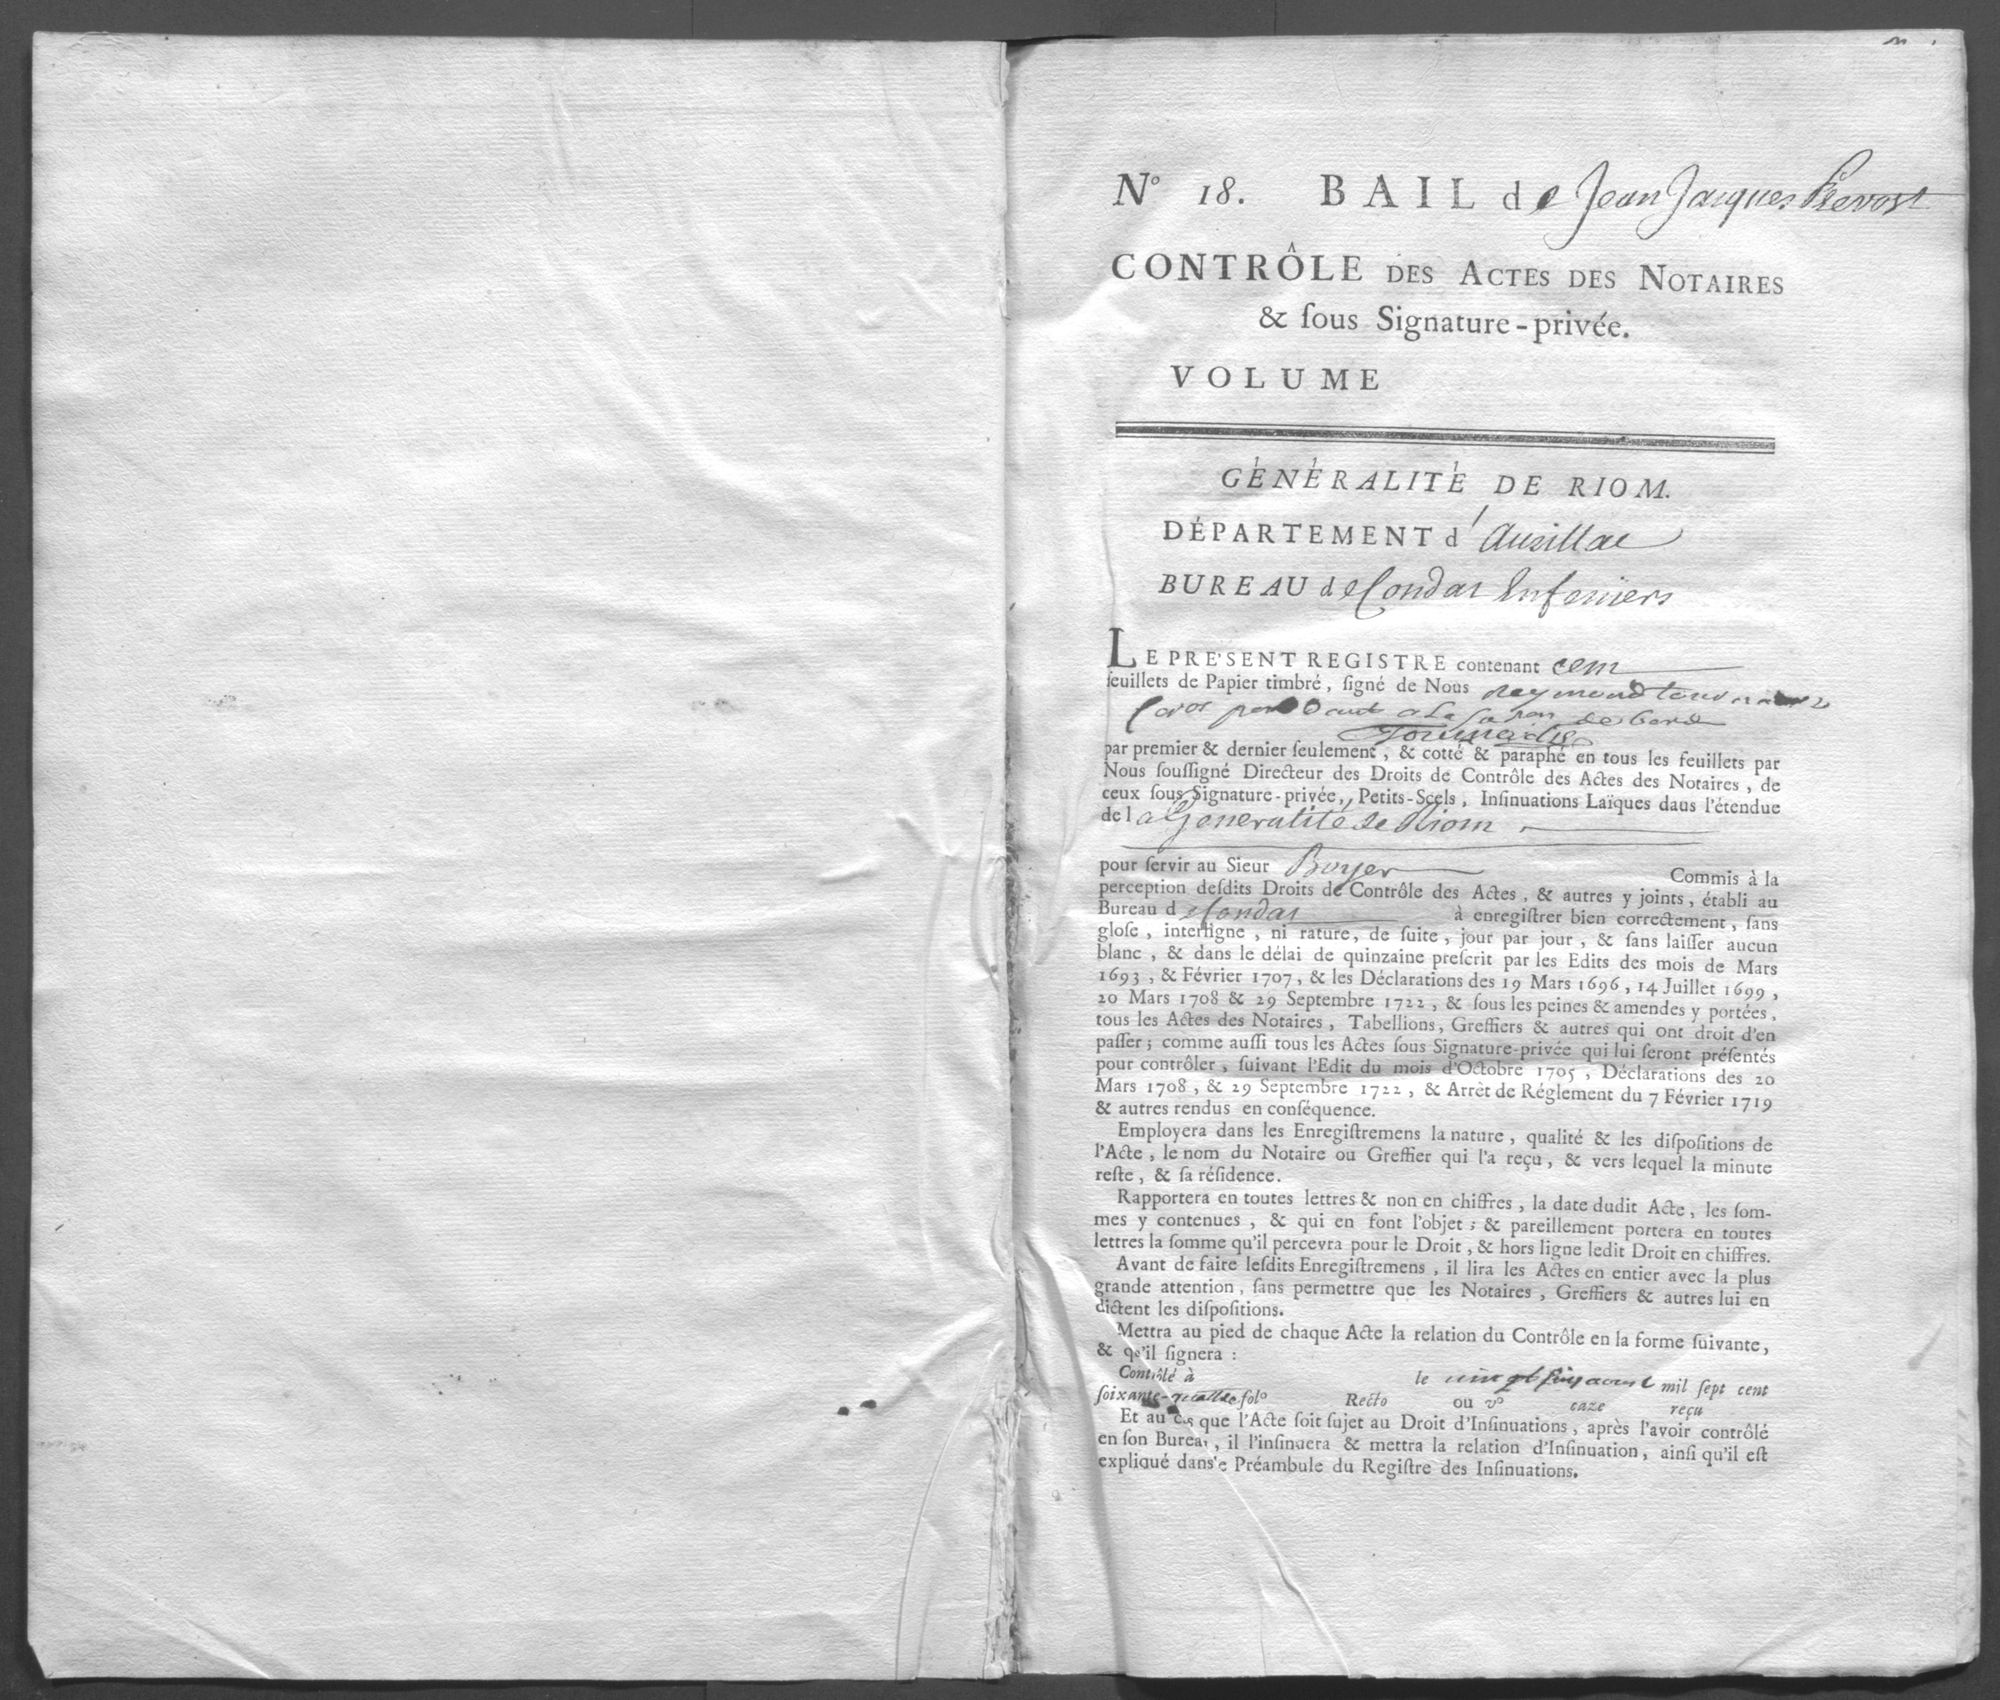 N° 18. BAIL de Jean Jacques Prevost
CONTRÔLE DES ACTES DES NOTAIRES
& ſous Signature-privée.
VOLUME
GÉNÉRALITÉ DE RIOM.
DÉPARTEMENT d'Aurillac
BUREAU de Condat
LE PRE'SENT REGISTRE contenant cent
feuillets de Papier timbré, ſigné de Nous Raymond
de
par premier & dernier ſeulement, & cotté & paraphé en tous les feuillets par
Nous ſouſſigné Directeur des Droits de Contrôle des Actes des Notaires, de
ceux ſous Signature-privée, Petits-Scels, Inſinuations Laïques daus l'étendue
de la Generalité de Riom
pour ſervir au Sieur Boyer Commis à la
perception deſdits Droits de Contrôle des Actes, & autres y joints, établi au
Bureau de Condat à enregiſtrer bien correctement, ſans
gloſe, interligne, ni rature, de ſuite, jour par jour, & ſans laiſſer aucun
blanc, & dans le délai de quinzaine preſcrit par les Edits des mois de Mars
1693, & Février 1707, & les Déclarations des 19 Mars 1696, 14 Juillet 1699,
20 Mars 1708 & 29 Septembre 1722, & ſous les peines & amendes y portées,
tous les Actes des Notaires, Tabellions, Greffiers & autres qui ont droit d'en
paſſer; comme auſſi tous les Actes ſous Signature-privée qui lui ſeront préſentés
pour contrôler, ſuivant l'Edit du mois d'Octobre 1705, Déclarations des 20
Mars 1708, & 29 Septembre 1722, & Arrèt de Réglement du 7 Février 1719
& autres rendus en conſéquence.
Employera dans les Enregiſtremens la nature, qualité & les diſpoſitions de
l'Acte, le nom du Notaire ou Greffier qui l'a reçu, & vers lequel la minute
reſte, & ſa réſidence.
Rapportera en toutes lettres & non en chiffres, la date dudit Acte, les ſom-
mes y contenues, & qui en font l'objet; & pareillement portera en toutes
lettres la ſomme qu'il percevra pour le Droit, & hors ligne ledit Droit en chiffres.
Avant de faire leſdits Enregiſtremens, il lira les Actes en entier avec la plus
grande attention, ſans permettre que les Notaires, Greffiers & autres lui en
dictent les diſpoſitions.
Mettra au pied de chaque Acte la relation du Contrôle en la forme ſuivante,
& qu'il ſignera :
Contrôlé à le vingt cinq aoust mil ſept cent
ſoixante-quatre fol° Recto ou v° caze reçu
Et au cas que l'Acte ſoit ſujet au Droit d'Inſinuations, après l'avoir contrôlé
en ſon Bureau, il l'inſinuera & mettra la relation d'Inſinuation, ainſi qu'il eſt
expliqué dans le Préambule du Regiſtre des Inſinuations.